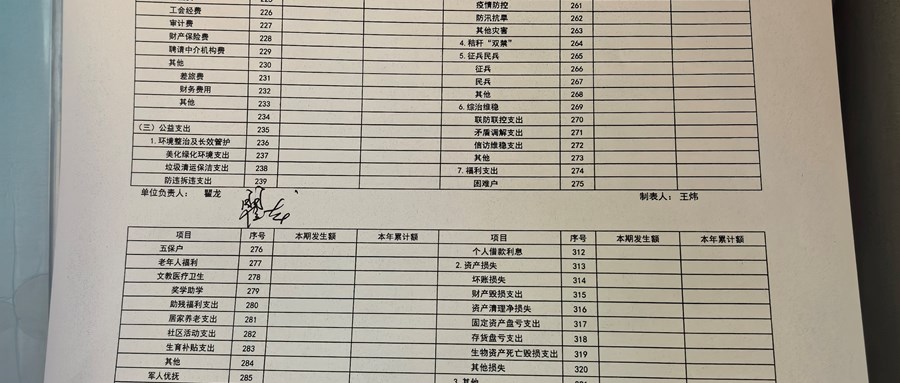 疫情防控 261
工会经费 226 防汛抗旱 262
审计费 227 其他灾害 263
财产保险费 228 4.秸秆“双禁” 264
聘请中介机构费 229 5.征兵民兵 265
其他 230 征兵 266
差旅费 231 民兵 267
财务费用 232 其他 268
其他 233 6.综治维稳 269
234 联防联控支出 270
(三)公益支出 235 矛盾调解支出 271
1.环境整治及长效管护 236 信访维稳支出 272
美化绿化环境支出 237 其他 273
垃圾清运保洁支出 238 7.福利支出 274
防违拆违支出 239 困难户 275
单位负责人: 瞿龙 制表人: 王炜
项目 序号 本期发生额 本年累计额 项目 序号 本期发生额 本年累计额
五保户 276 个人借款利息 312
老年人福利 277 2.资产损失 313
文教医疗卫生 278 坏账损失 314
奖学助学 279 财产毁损支出 315
助残福利支出 280 资产清理净损失 316
居家养老支出 281 固定资产盘亏支出 317
社区活动支出 282 存货盘亏支出 318
生育补贴支出 283 生物资产死亡毁损支出 319
其他 284 其他损失 320
军人优抚 285 3.其他